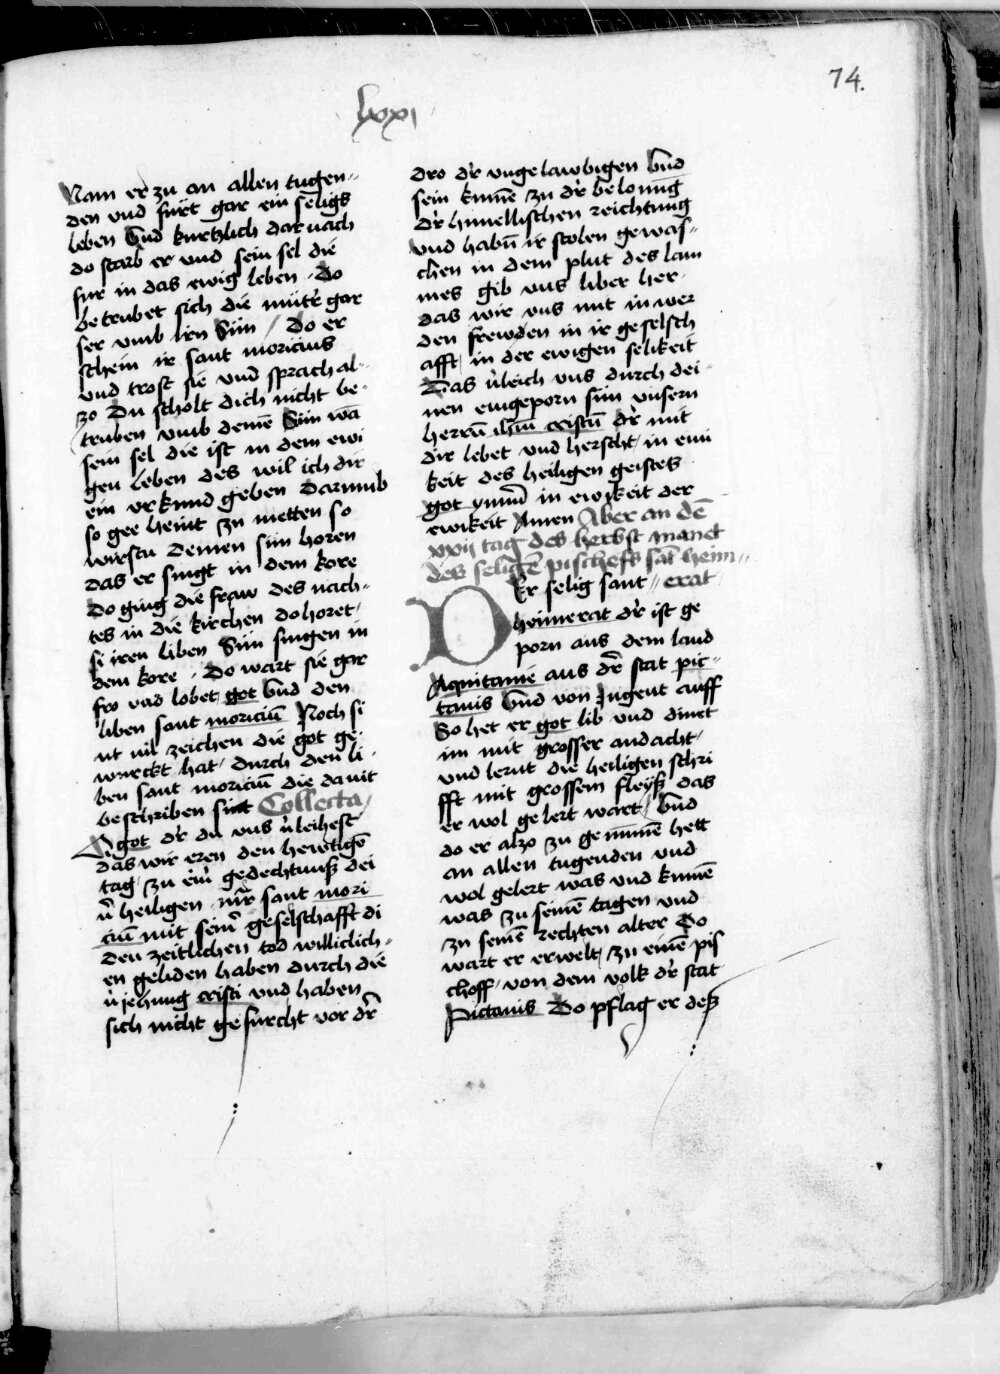 74.
lxxi
Nam er zu an allen tugen„
den vnd fürt gar ein seligs
leben Vnd kurtzlich dar nach
do starb er vnd sein sel die
fur in das ewig leben · Do
betrubet sich die mütr̄ gar
ser vmb irn Sün / Do er
schein ir sant moricius
vnd trost sie vnd sprach al-
zo Du scholt dich nicht be-
truben vmb deinē Sün wā
sein sel die ist in dem ewi
gen leben des wil ich dir
ein vrkund geben Darumb
so gee heint zu metten so
wirstu deinen sün horen
das er singt in dem kore
Do ging die fraw des nach-
tes in die kirchen do horet
si iren liben Sün singen in
dem kore · Do wart sie gar
fro vnd lobet got vnd den
liben sant moriciū Noch si
nt vil zeichen die got ge-
wurckt hat / durch den li
ben sant moriciū die da nit
beschriben sint Collecta
O got dr̄ du vns v̄leihest
das wir eren den hewtigē
tag / zu ein̄ gedechtnuß dei
n̄ heiligen mr̄ sant mori
ciū mit sein̄ geselschafft di
den zeitlichen tod williclich-
en geliden haben durch die
v̄jehung cristi vnd haben
sich nicht gefurcht vor dr̄
dro dr̄ vngelawbigen vnd
sein kumē zu dr̄ belonūg
dr̄ himellischen reichtung
vnd habn̄ ir stolen gewas-
chen in dem plut des lam
mes gib vns liber her
das wir vns mit in wer
den frewden in ir geselsch
afft / in der ewigen selikeit
Das v̄leich vns durch dei-
nen eingeporn sun vnsern
herrn̄ ihm̄ cristū dr̄ mit
dir lebet vnd herscht / in eini
keit des heiligen geistes
got ymm̄ in ewikeit der
ewikeit Amen Aber an dē
xxij tag des herbst monet
des seligē pischofs sāt heim„
Er selig sant „ erat
heimerat dr̄ ist ge
porn aus dem land
Aquitanie aus dr̄ stat pic-
tanis vnd von Jugent auff
So het er got lib vnd dinet
im mit grosser andacht /
vnd lernt die heiligen schri
fft mit grossem fleyß das
er wol gelert wart / vnd
do er alzo zu genumē hett
an allen tugenden vnd
wol gelert was vnd kumē
was zu seinē tagen vnd
zu seinē rechten alter Do
wart er erwelt / zu einē pis
choff / von dem volk dr̄ stat
Pictanis Do pflag er deß